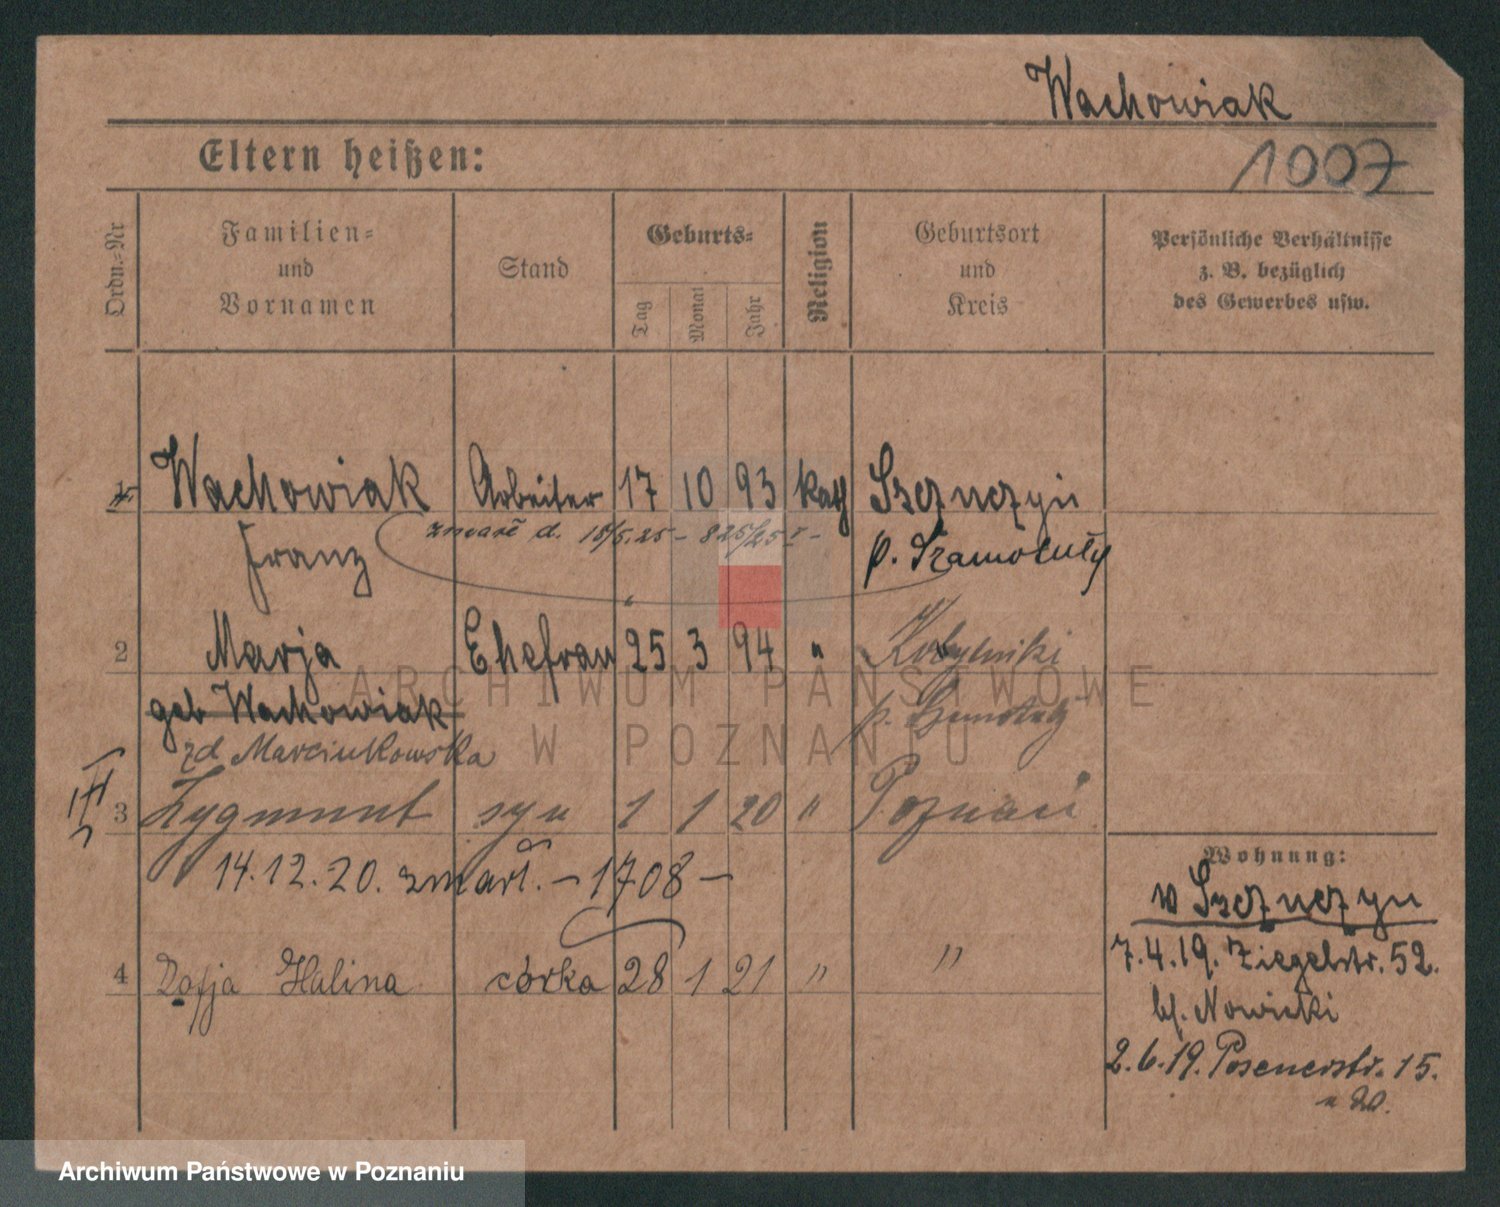 Wachowiak
1007
Eltern heißen:
Ordn.-Nr
Familien- und Vornamen
Stand
Geburts-
Tag
Monat
Jahr
Religion
Geburtsort und Kreis
Persönliche Verhältnisse z. B. bezüglich des Gewerbes usw.
1 Wachowiak Arbeiter 17 10 93 kath Szczuczyn
Franz zmarł d. 18/5.25 - 825/25 I - p. Szamotuły
2 Marja Ehefrau 25 3 94 " Kobylniki
geb Wachowiak p. Szamotuły
zd Marciukowska
3 Zygmunt syn 1 1 20 " Poznań
14.12.20. zmarł. - 1708 -
4 Zofja Halina córka 28 1 21 " "
Wohnung:
w Szczuczyn
7.4.19. Ziegelstr. 52.
bf. Nowicki
2.6.19. Posenerstr. 15.
ARCHIWUM PAŃSTWOWE
W POZNANIU
Archiwum Państwowe w Poznaniu